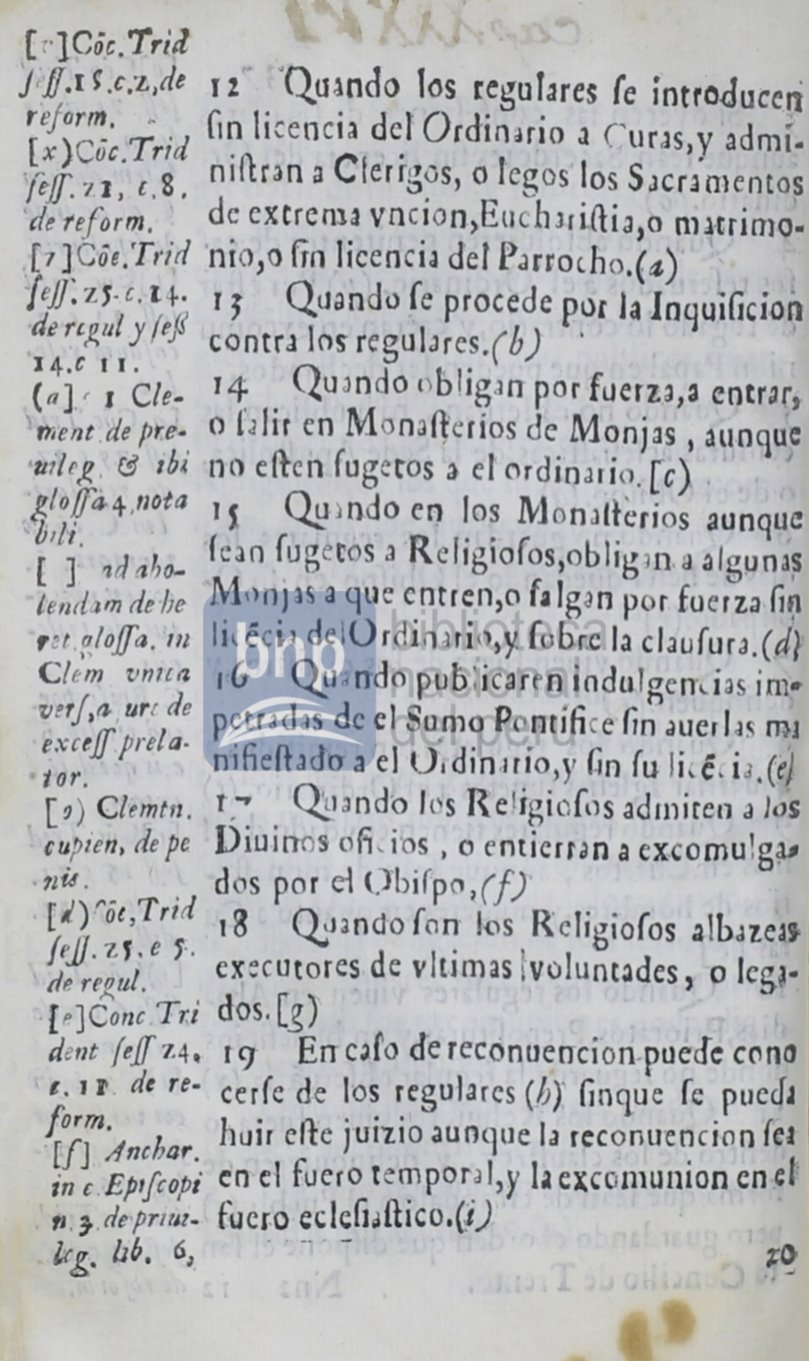 [ ]Cõc.Trid
ſeſſ.15.c.2,de
reform.
[x)Cõc.Trid
ſeſſ.21, c.8.
de reform.
[7]Cõc.Trid
ſeſſ.25.c.14.
de regul y ſeſſ
14.c 11.
(a] c 1 Cle-
ment de pre-
uileg. & ibi
gloſſa 4.nota
bili.
[ ] ad abo-
lendam de he
ret.gloſſa. in
Clem vnica
verſ,a ure de
exceſſ prela-
tor.
[9) Clemtn.
cupien, de pe
nis.
[d)Cõc,Trid
ſeſſ.25.c 5.
de regul.
[e]Conc Tri
dent ſeſſ 24.
c. 11 de re-
form.
[f] Anchar.
in c Epiſcopi
n 3 de priui-
leg. lib. 6,
12 Quando los regulares ſe introducen
ſin licencia del Ordinario a Curas,y admi-
niſtran a Clerigos, o legos los Sacramentos
de extrema vncion,Euchariſtia,o matrimo-
nio,o ſin licencia del Parrocho.(a)
13 Quando ſe procede por la Inquiſicion
contra los regulares.(b)
14 Quando obligan por fuerza,a entrar,
o ſalir en Monaſterios de Monjas , aunque
no eſten ſugetos a el ordinario.[c)
15 Quando en los Monaſterios aunque
ſean ſugetos a Religioſos,obligan a algunas
Monjas a que entren,o ſalgan por fuerza ſin
licẽcia del Ordinario,y ſobre la clauſura.(d)
16 Quando publicaren indulgencias im-
petradas de el Sumo Pontifice ſin auerlas ma
nifieſtado a el Ordinario,y ſin ſu licẽcia.(e)
17 Quando los Religioſos admiten a los
Diuinos oficios , o entierran a excomulga-
dos por el Obiſpo,(f)
18 Quando ſon los Religioſos albazeas
executores de vltimas voluntades, o lega-
dos.[g)
19 En caſo de reconuencion puede cono
cerſe de los regulares (h) ſinque ſe pueda
huir eſte juizio aunque la reconuencion ſea
en el fuero temporal,y la excomunion en el
fuero ecleſiaſtico.(i)
20
bnp
biblioteca
nacional
del perú